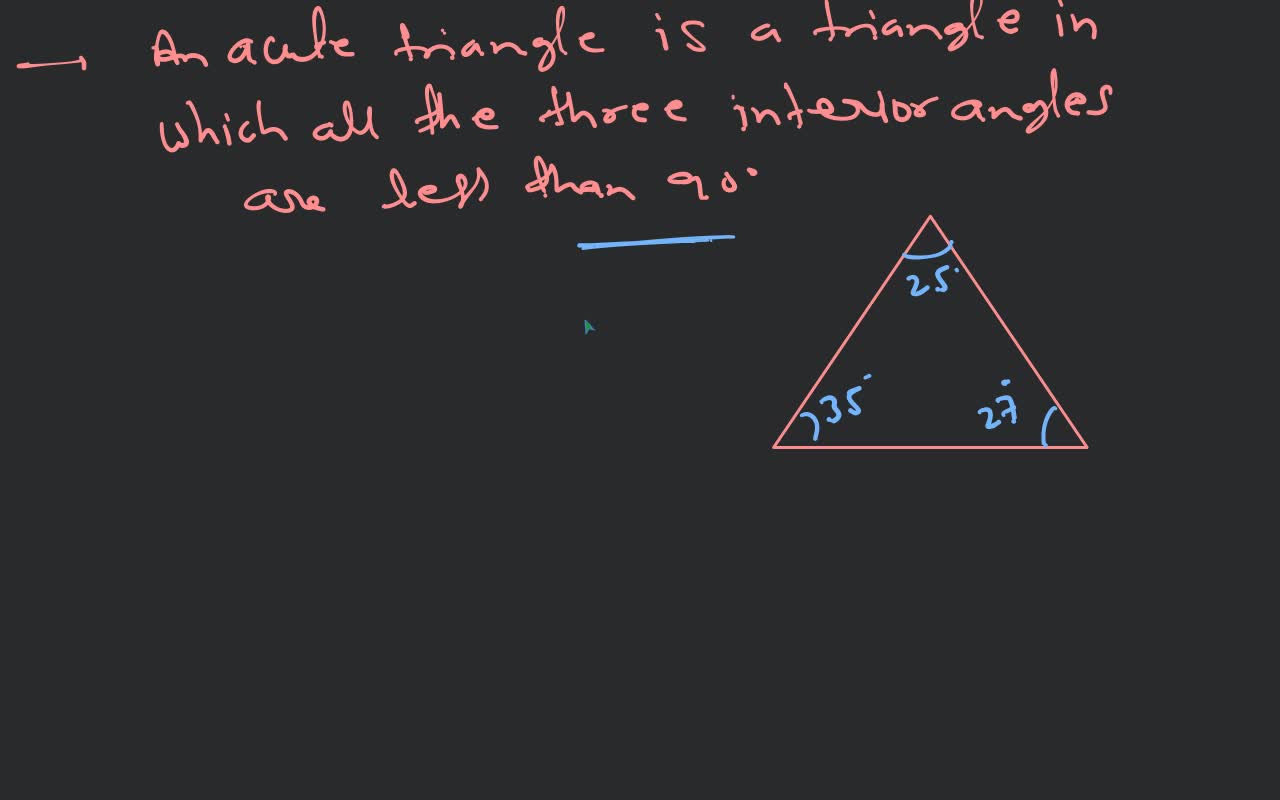 An acute triangle is a triangle in
which all the three interior angles
are less than 90°
25°
35°
27°